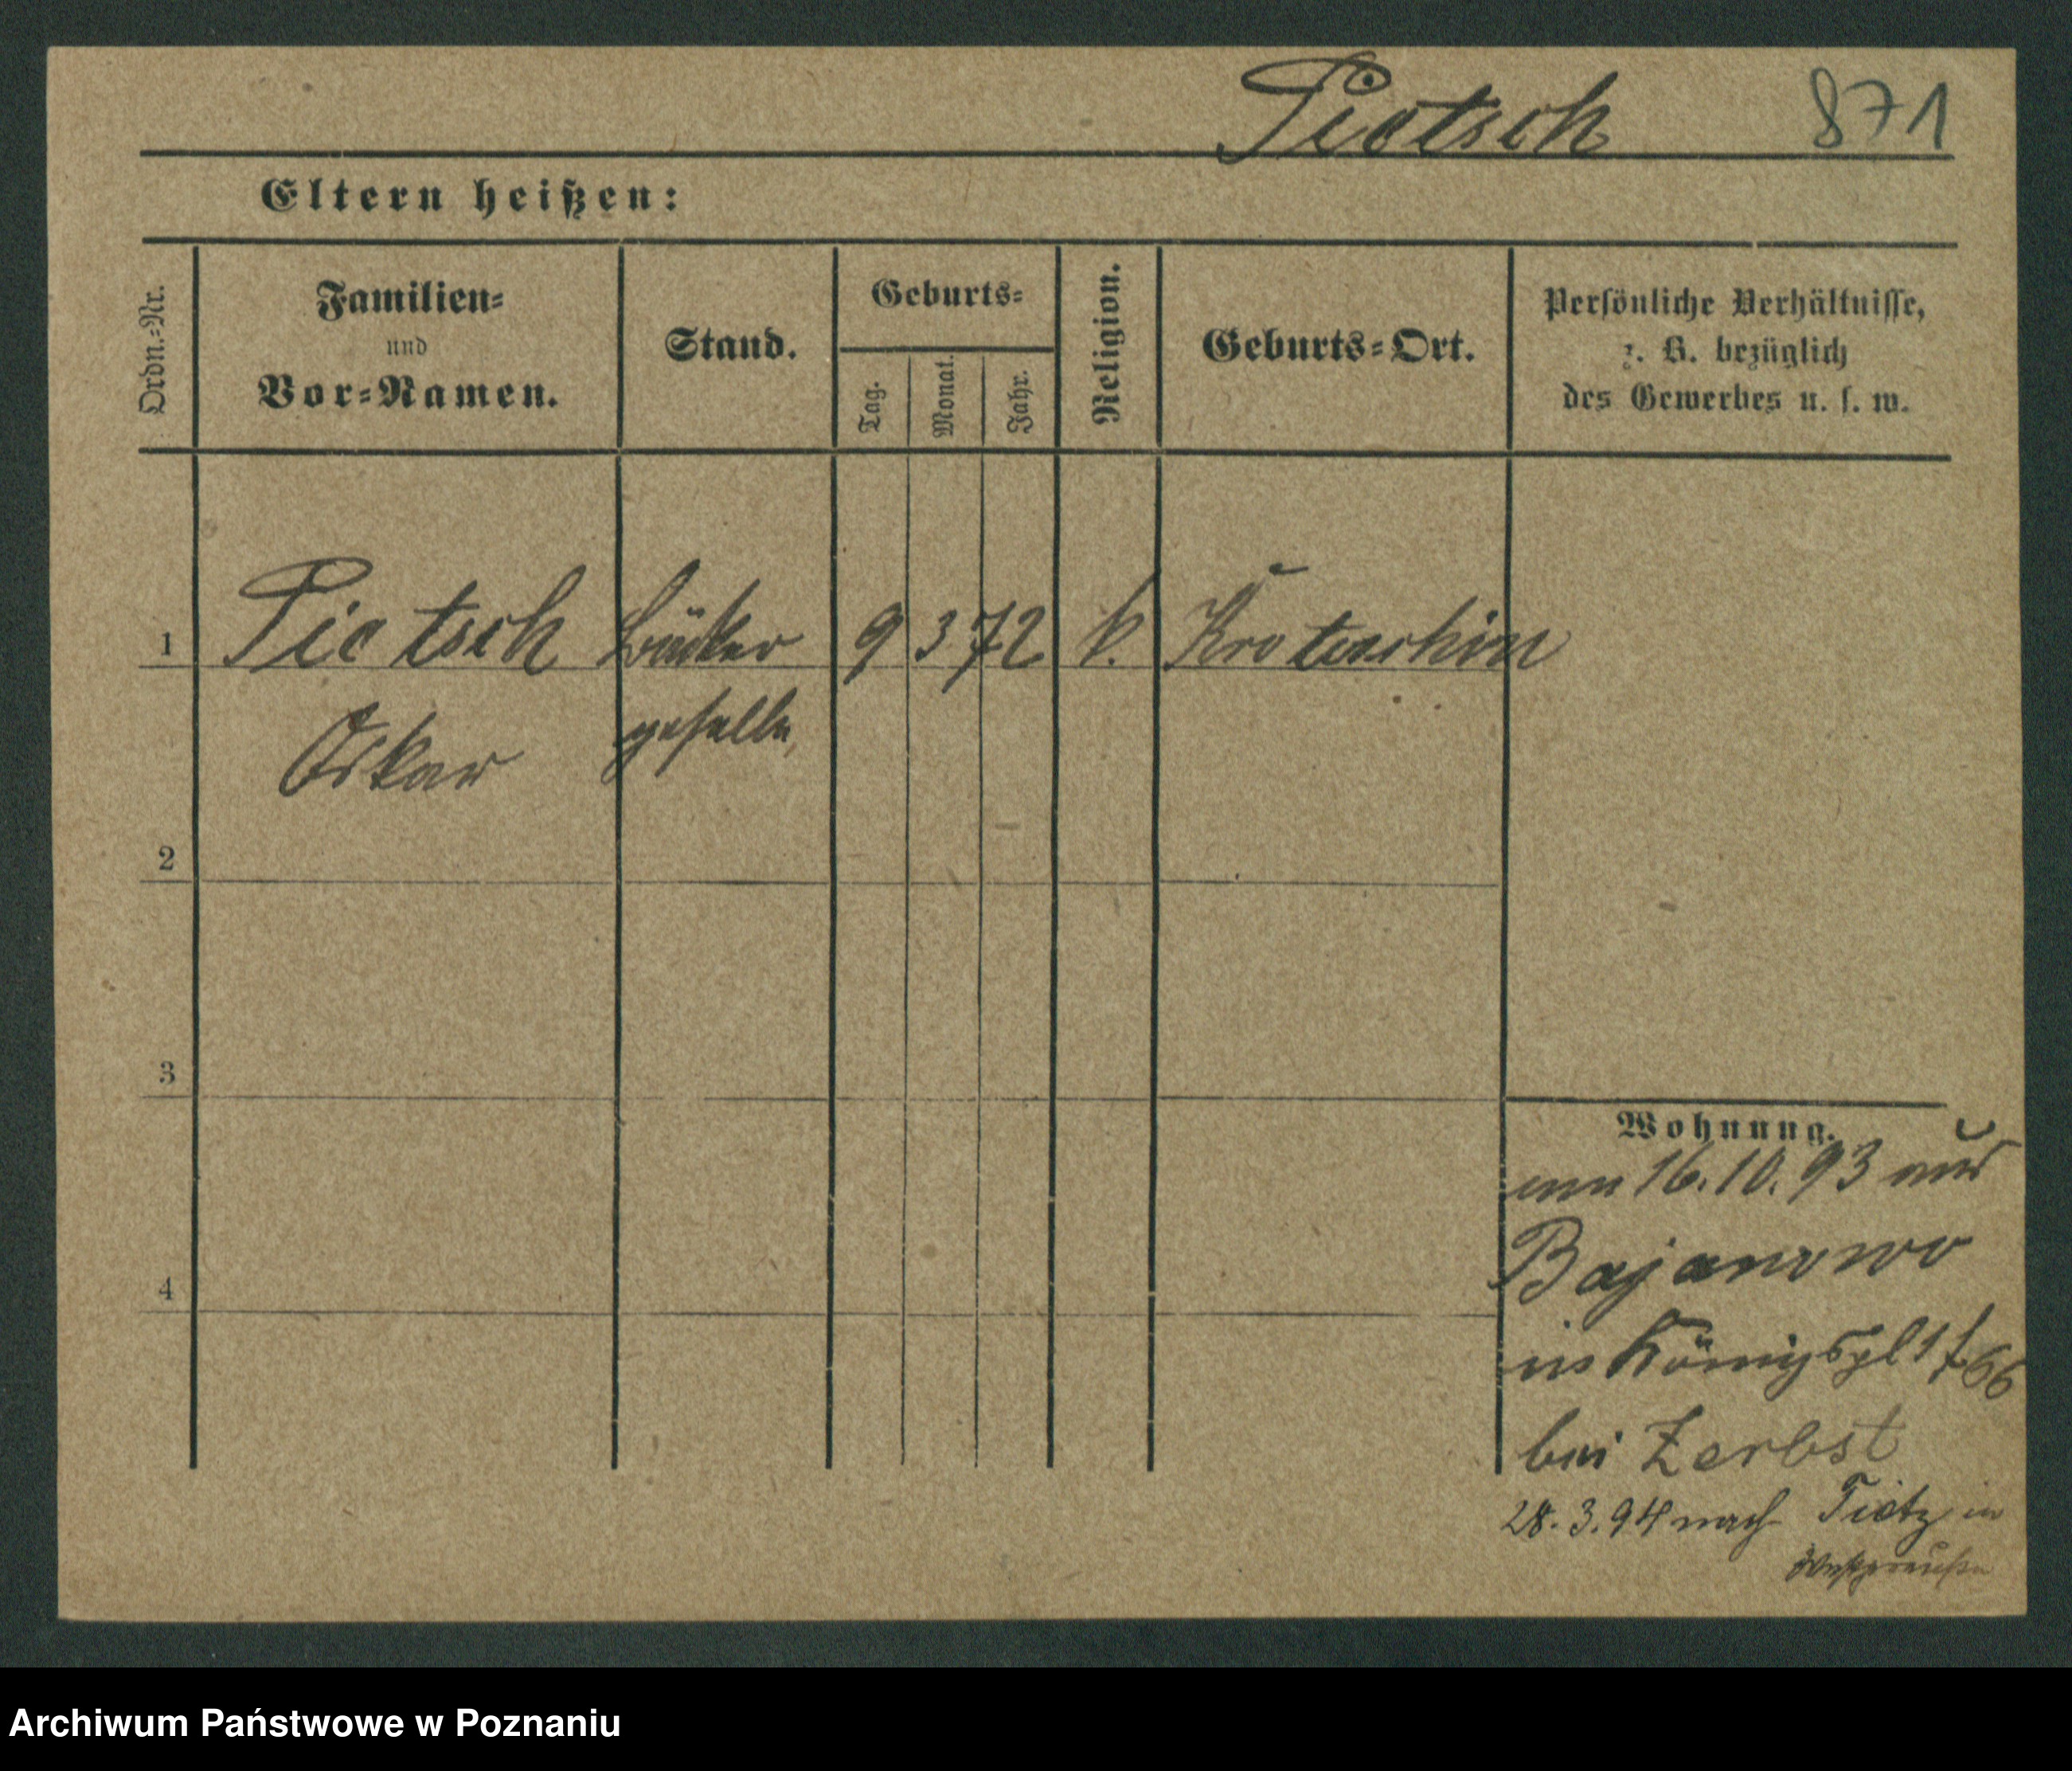 Pietsch 871
Eltern heißen:
Ordn.-Nr.
Familien-
und
Vor-Namen.
Stand.
Geburts-
Tag.
Monat.
Jahr.
Religion.
Geburts-Ort.
Persönliche Verhältnisse,
z. B. bezüglich
des Gewerbes u. s. w.
1 Pietsch Bäcker 9 3 72 k. Krotoschin
Oskar geselle
2
3
4
Wohnung.
16.10.93 aus
Bojanowo
in Königspl 1
bei Zerbst
28.3.94 nach Tietz in
Westpreußen
Archiwum Państwowe w Poznaniu